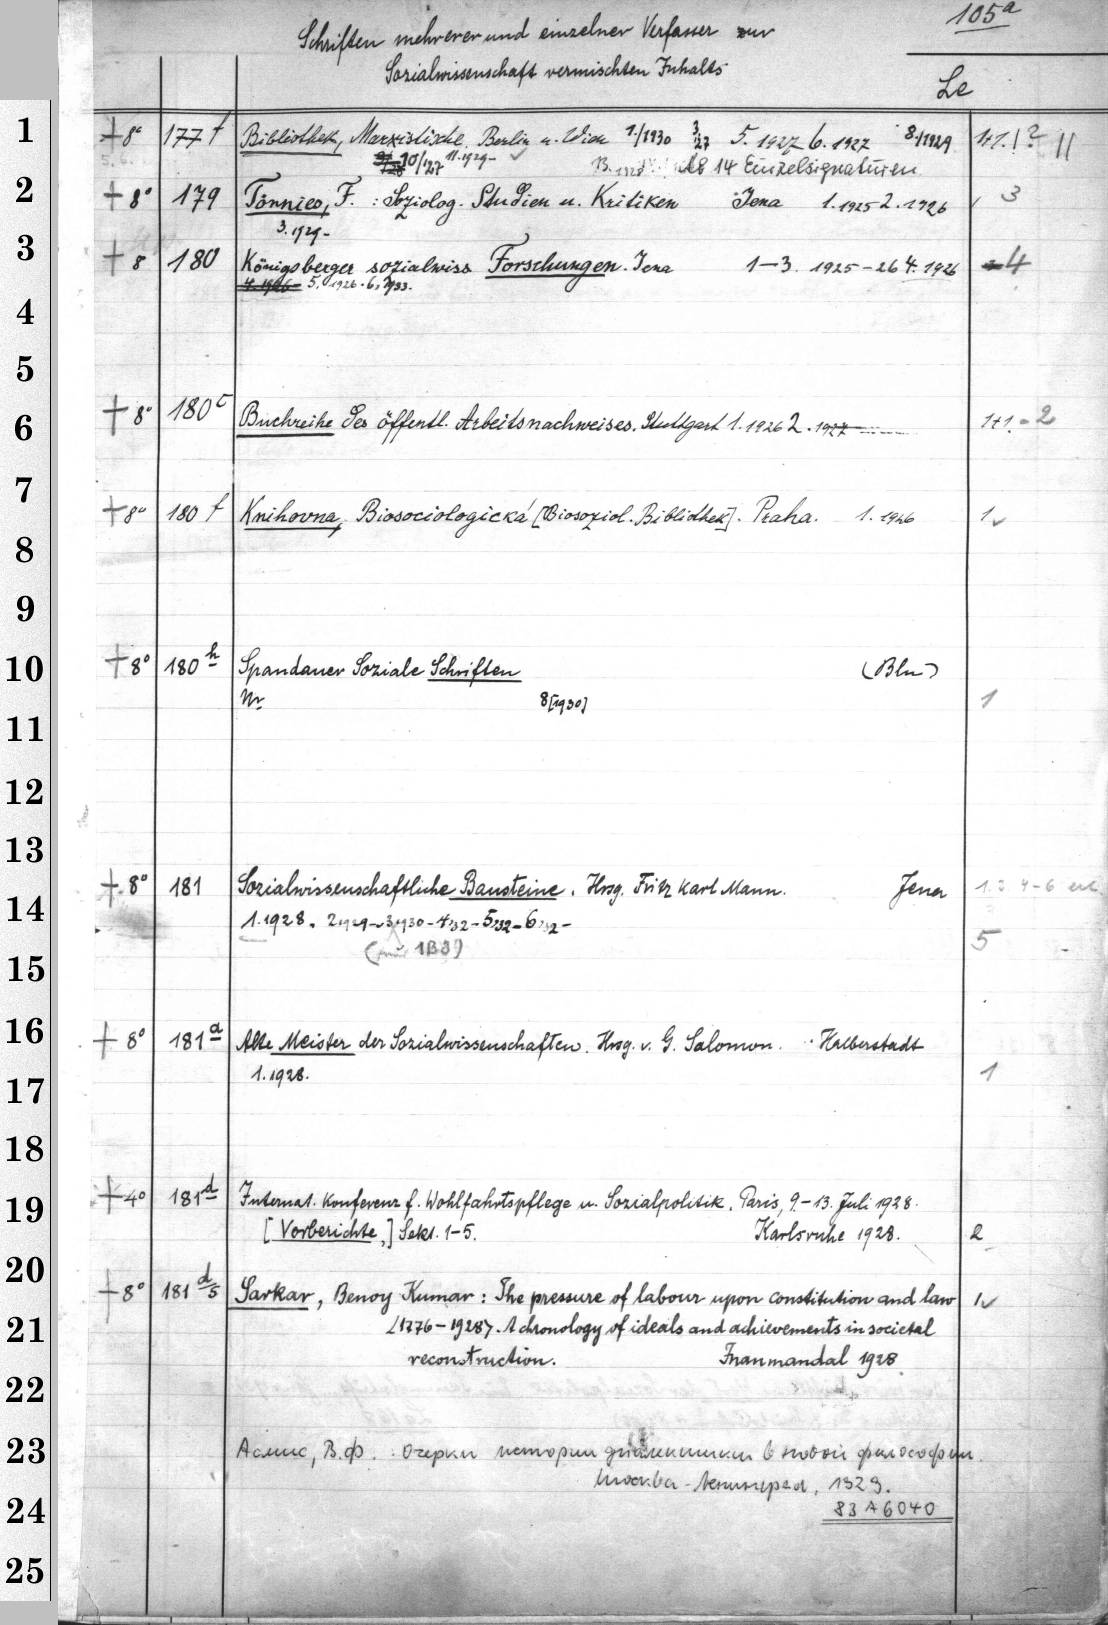 105a
Schriften mehrerer und einzelner Verfasser zur
Sozialwissenschaft vermischten Inhalts
Le
1 + 8° 177 f Bibliothek, Marxistische. Berlin u. Wien 1./1930 3/27 5. 1927 6. 1927 8./1929 1+1.
10/127 11.1929- 14 Einzelsignaturen
2 + 8° 179 Tönnies, F.: Soziolog. Studien u. Kritiken Jena 1.1925 2.1926 3
3. 1929-
3 + 8 180 Königsberger sozialwiss Forschungen. Jena 1-3. 1925-26 4. 1926 4
4. 1926 5. 1926. 6, 1933.
4
5
6 + 8° 180c Buchreihe des öffentl. Arbeitsnachweises. Stuttgart 1. 1926 2. 1927 1+1. = 2
7
+ 8° 180 f Knihovna, Biosociologická [Biosoziol. Bibliothek]. Praha. 1. 1926 1
8
9
10 + 8° 180h Spandauer Soziale Schriften (Bln)
Nr 8[1930] 1
11
12
13
14 + 8° 181 Sozialwissenschaftliche Bausteine. Hrsg. Fritz Karl Mann. Jena
1. 1928. 2 1929-3 1930-4,32-5,32-6,32-
5
15
16 + 8° 181a Alte Meister der Sozialwissenschaften. Hrsg. v. G. Salomon. Halberstadt
1. 1928. 1
17
18
19 + 4° 181d Internat. Konferenz f. Wohlfahrtspflege u. Sozialpolitik. Paris, 9.-13. Juli 1928.
[Vorberichte,] Sekt. 1-5. Karlsruhe 1928. 2
20
+ 8° 181d/5 Sarkar, Benoy Kumar: The pressure of labour upon constitution and law 1
21 <1776-1928>. A chronology of ideals and achievements in societal
reconstruction. Inanmandal 1928
22
23 Асмус, В.Ф.: Очерки истории диалектики в новой философии.
Москва-Ленинград, 1929.
24 83 A 6040
25